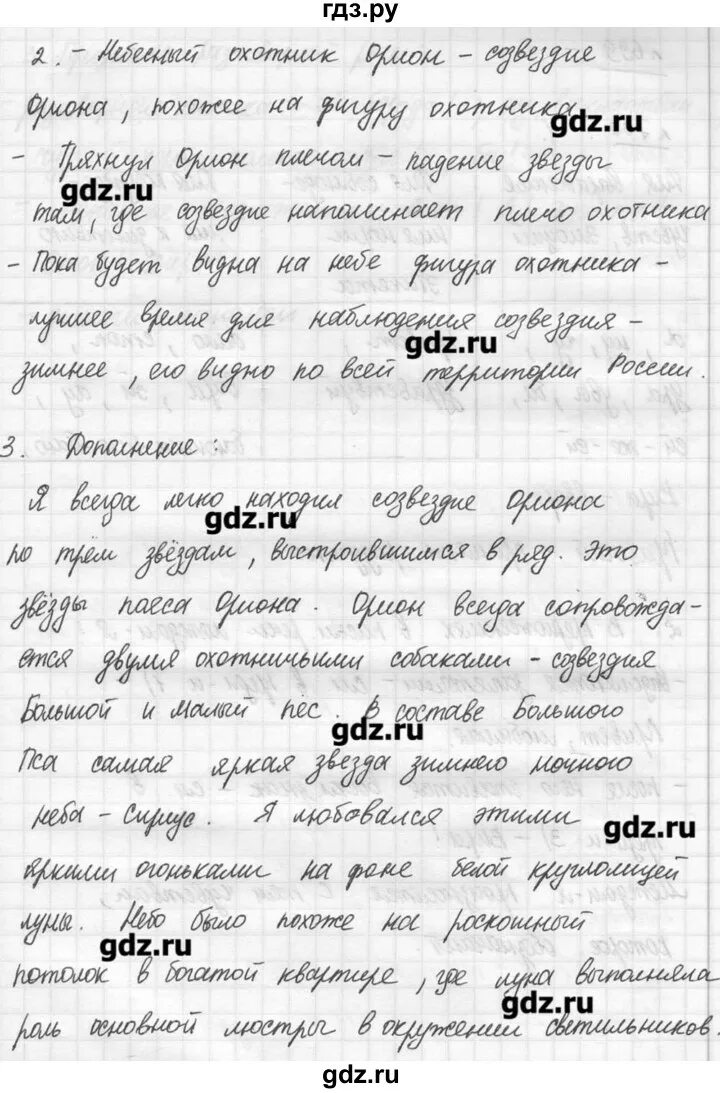 гдз.ру
2. - Небесный охотник Орион - созвездие
Ориона, похожее на фигуру охотника.
gdz.ru
- Тряхнул Орион плечом - падение звезды
gdz.ru
там, где созвездие напоминает плечо охотника
- Пока будет видна на небе фигура охотника -
лучшее время для наблюдения созвездия -
gdz.ru
зимнее, его видно по всей территории России.
3. Дополнение:
Я всегда легко находил созвездие Ориона
gdz.ru
по трём звёздам, выстроившимся в ряд. Это
звёзды пояса Ориона. Орион всегда сопровожда-
ется двумя охотничьими собаками - созвездия
Большой и Малый пёс. В составе Большого
gdz.ru
Пса самая яркая звезда зимнего ночного
неба - Сириус. Я любовался этими
gdz.ru
яркими огоньками на фоне белой круглолицей
луны. Небо было похоже на роскошный
gdz.ru
потолок в богатой квартире, где луна выполняла
gdz.ru
роль основной люстры в окружении светильников.
gdz.ru